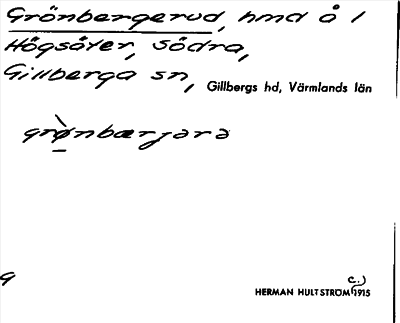 Grönbergerud, hmd å 1
Högsäter, Södra,
Gillberga sn,
Gillbergs hd, Värmlands län
grø̀nbærjarə
g
c.)
HERMAN HULTSTRÖM 1915